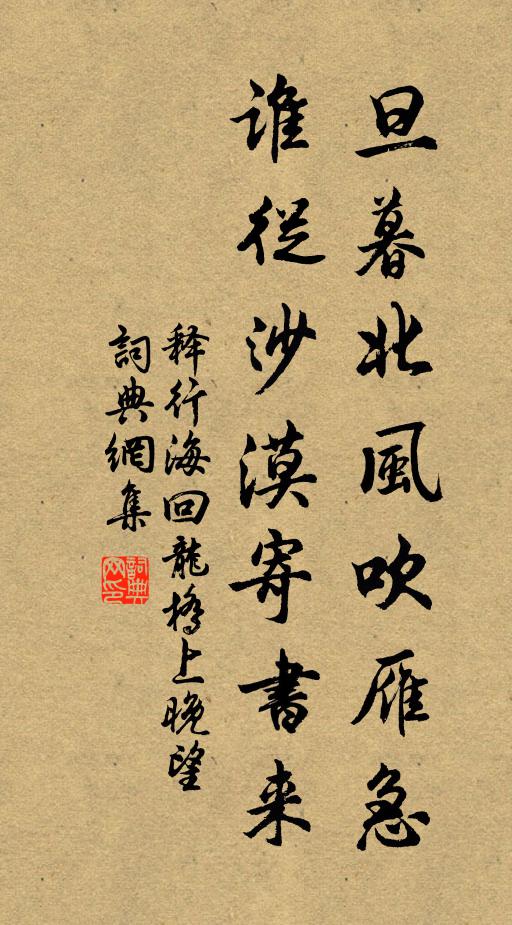 旦暮北風吹雁急
誰從沙漠寄書来
释行海回龍橋上晚望
詞典網集
詞典网印